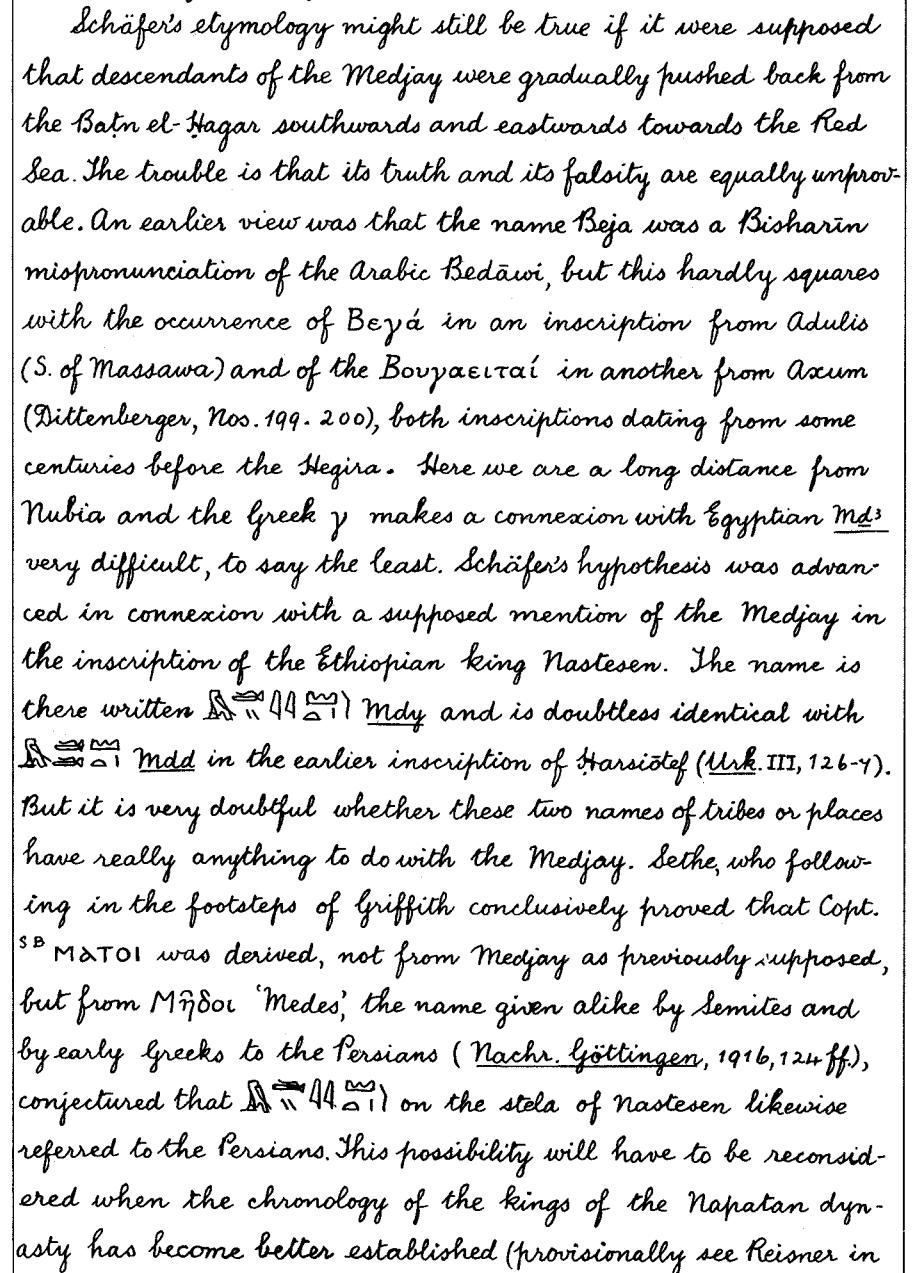 Schäfer's etymology might still be true if it were supposed
that descendants of the Medjay were gradually pushed back from
the Baṭn el-Ḥagar southwards and eastwards towards the Red
Sea. The trouble is that its truth and its falsity are equally unprov-
able. An earlier view was that the name Beja was a Bisharīn
mispronunciation of the Arabic Bedāwi, but this hardly squares
with the occurrence of Βεγά in an inscription from Adulis
(S. of Massawa) and of the Βουγαειταί in another from Axum
(Dittenberger, Nos. 199. 200), both inscriptions dating from some
centuries before the Hegira. Here we are a long distance from
Nubia and the Greek γ makes a connexion with Egyptian Mḏꜣ
very difficult, to say the least. Schäfer's hypothesis was advan-
ced in connexion with a supposed mention of the Medjay in
the inscription of the Ethiopian king Nastesen. The name is
there written Mdy and is doubtless identical with
Mdd in the earlier inscription of Ḥarsiōtef (Urk. III, 126-7).
But it is very doubtful whether these two names of tribes or places
have really anything to do with the Medjay. Sethe, who follow-
ing in the footsteps of Griffith conclusively proved that Copt.
SB ⲘⲀⲦⲞⲒ was derived, not from Medjay as previously supposed,
but from Μῆδοι 'Medes', the name given alike by Semites and
by early Greeks to the Persians (Nachr. Göttingen, 1916, 124 ff.),
conjectured that on the stela of Nastesen likewise
referred to the Persians. This possibility will have to be reconsid-
ered when the chronology of the kings of the Napatan dyn-
asty has become better established (provisionally see Reisner in